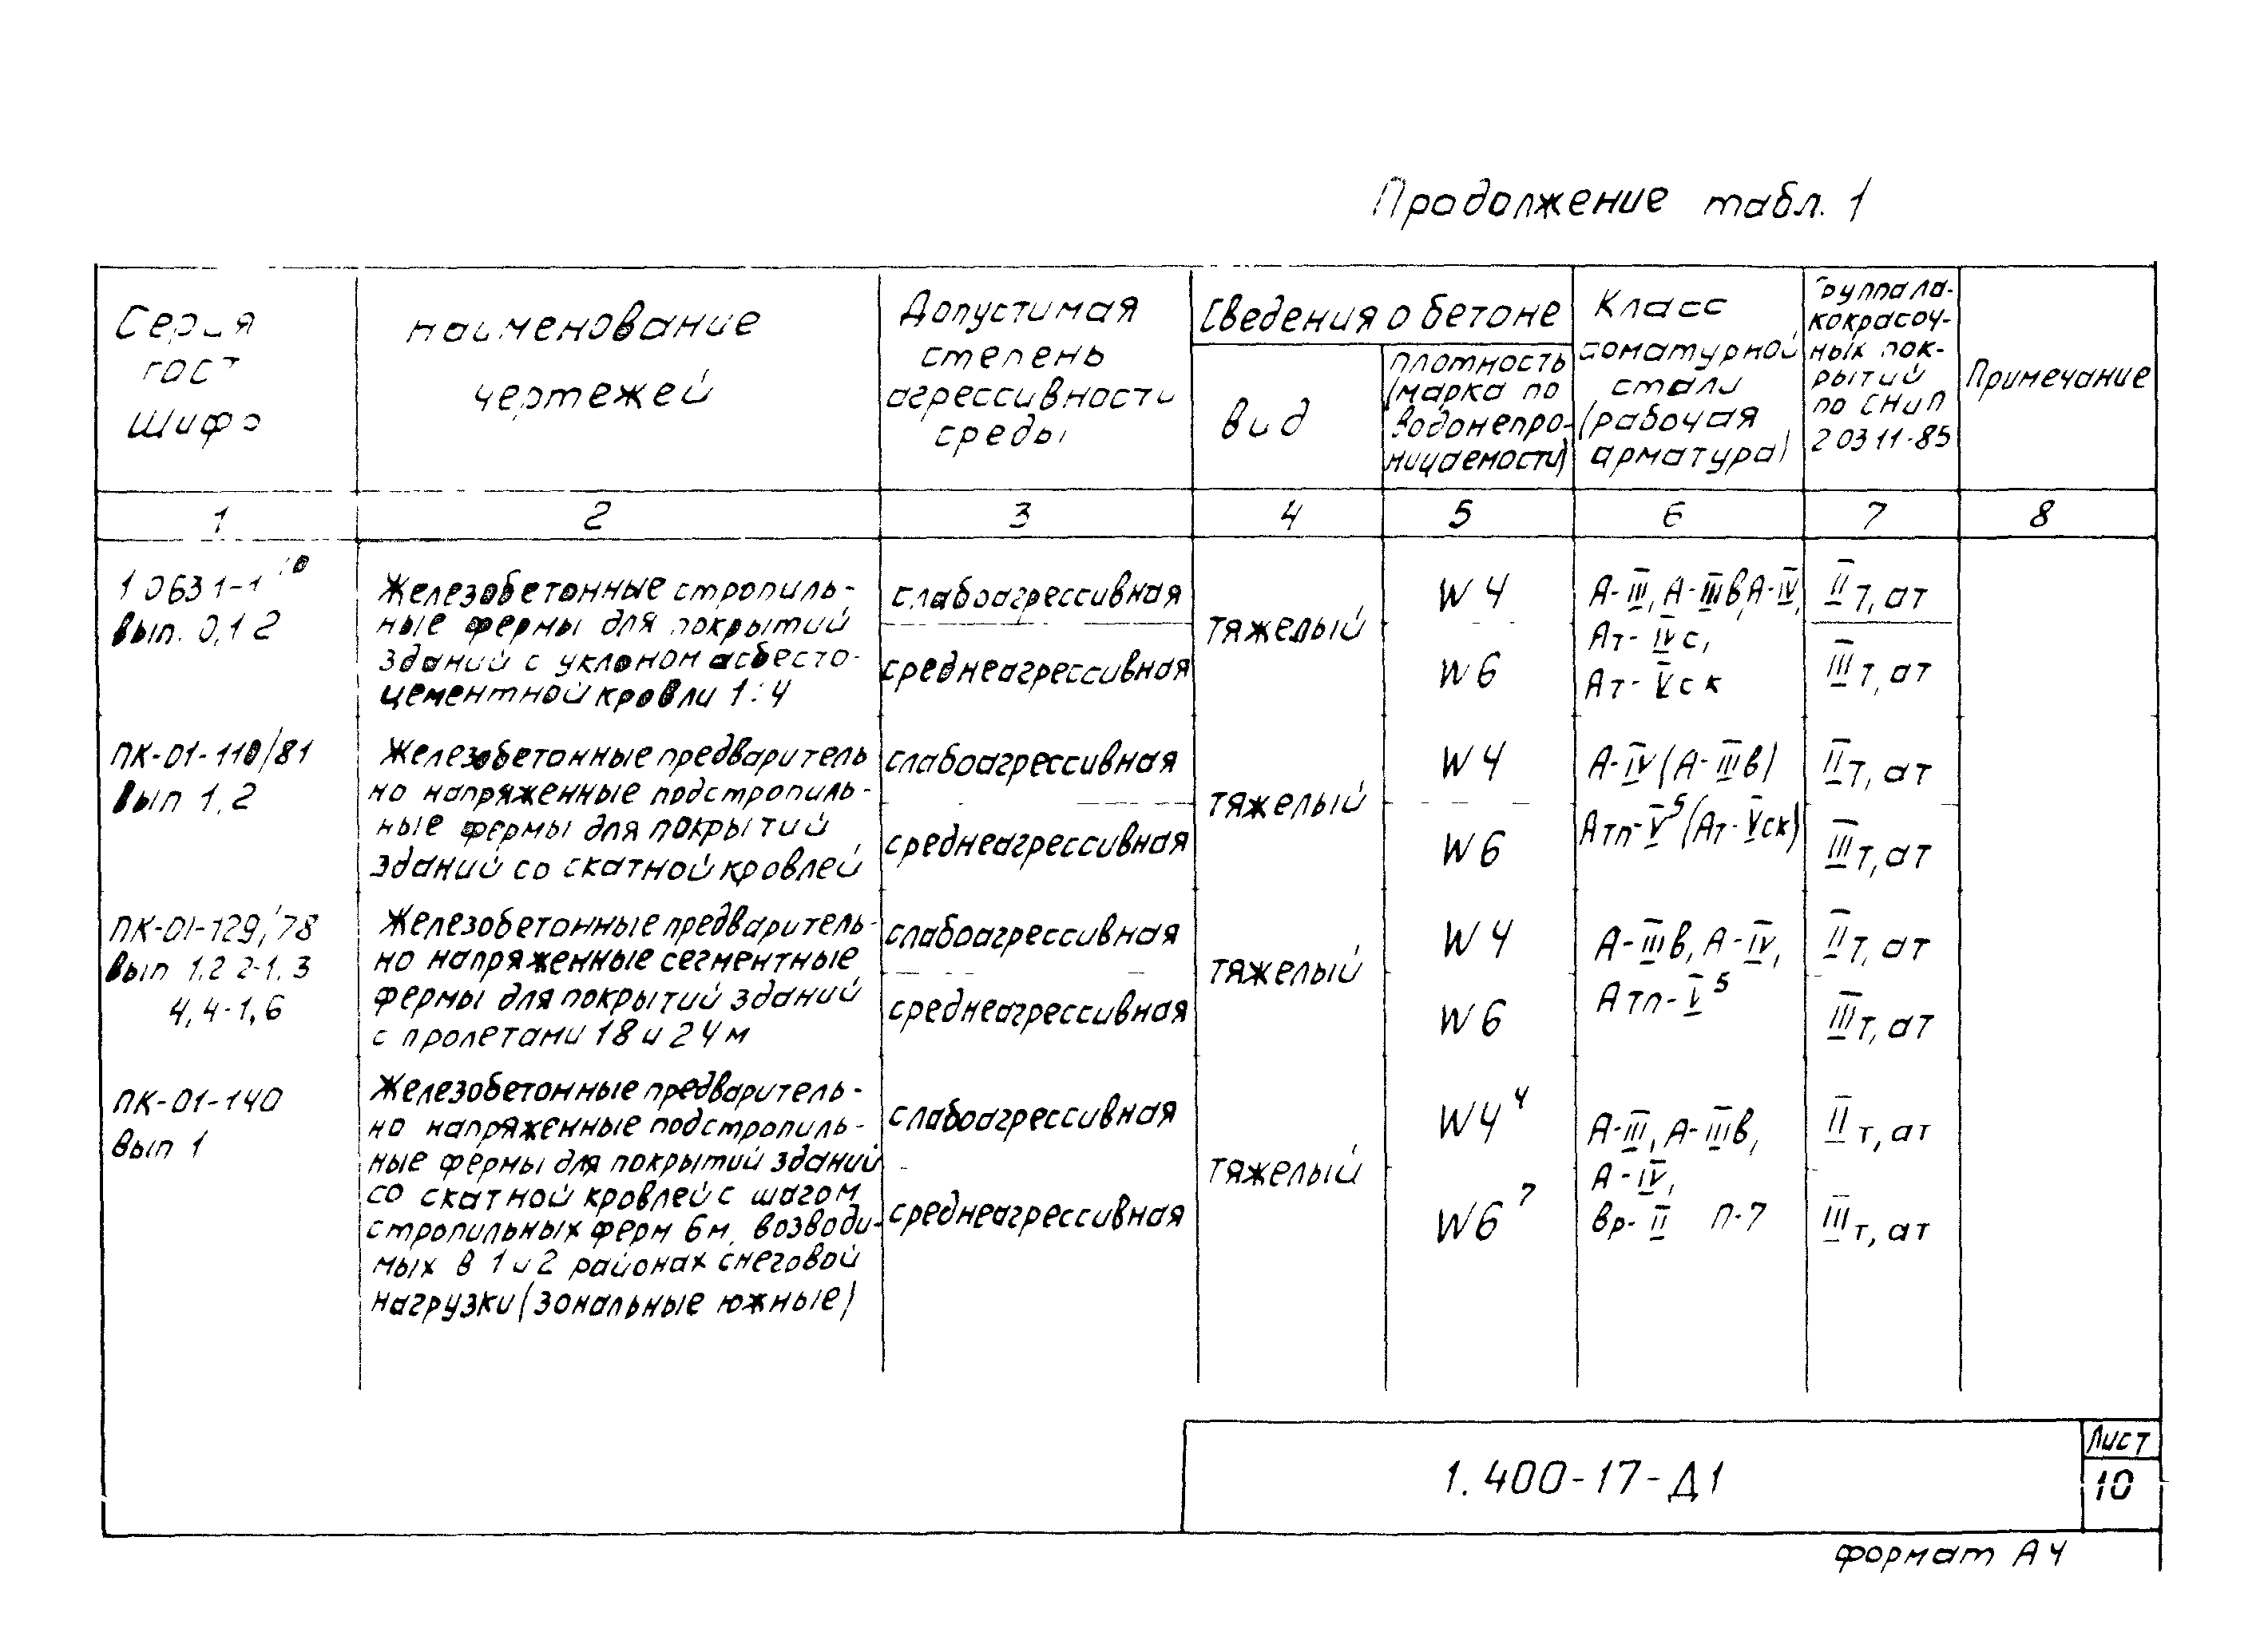 Продолжение табл. 1
Серия
гост
шифр
наименование
чертежей
Допустимая
степень
агрессивности
среды
Сведения о бетоне
вид
плотность
(марка по
водонепро-
ницаемости)
Класс
арматурной
стали
(рабочая
арматура)
Группа ла-
кокрасоч-
ных пок-
рытий
по СНиП
2 03 11-85
Примечание
1 2 3 4 5 6 7 8
1 063 1-1
Вып. 0,1 2
Железобетонные стропиль-
ные фермы для покрытий
зданий с уклоном асбесто-
цементной кровли 1:4
слабоагрессивная
среднеагрессивная
тяжелый
W4
W6
А-III, А-IIIв, А-IV,
Ат-IVс,
Ат-Vск
IIт, ат
IIIт, ат
ПК-01-110/81
Вып 1,2
Железобетонные предваритель
но напряженные подстропиль-
ные фермы для покрытий
зданий со скатной кровлей
слабоагрессивная
среднеагрессивная
тяжелый
W4
W6
А-IV (А-IIIв)
Атп-V⁵ (Ат-Vск)
IIт, ат
IIIт, ат
ПК-01-129/78
Вып 1,2 2-1, 3
4, 4-1, 6
Железобетонные предваритель-
но напряженные сегментные
фермы для покрытий зданий
с пролетами 18 и 24 м
слабоагрессивная
среднеагрессивная
тяжелый
W4
W6
А-IIIв, А-IV,
Атп-V⁵
IIт, ат
IIIт, ат
ПК-01-140
Вып 1
Железобетонные предваритель-
но напряженные подстропиль-
ные фермы для покрытий зданий
со скатной кровлей с шагом
стропильных ферм 6м, возводи-
мых в 1 и 2 районах снеговой
нагрузки (зональные южные)
слабоагрессивная
среднеагрессивная
тяжелый
W4⁴
W6⁷
А-III, А-IIIв,
А-IV,
Вр-II П-7
IIт, ат
IIIт, ат
1.400-17-Д1
Лист
10
формат А4